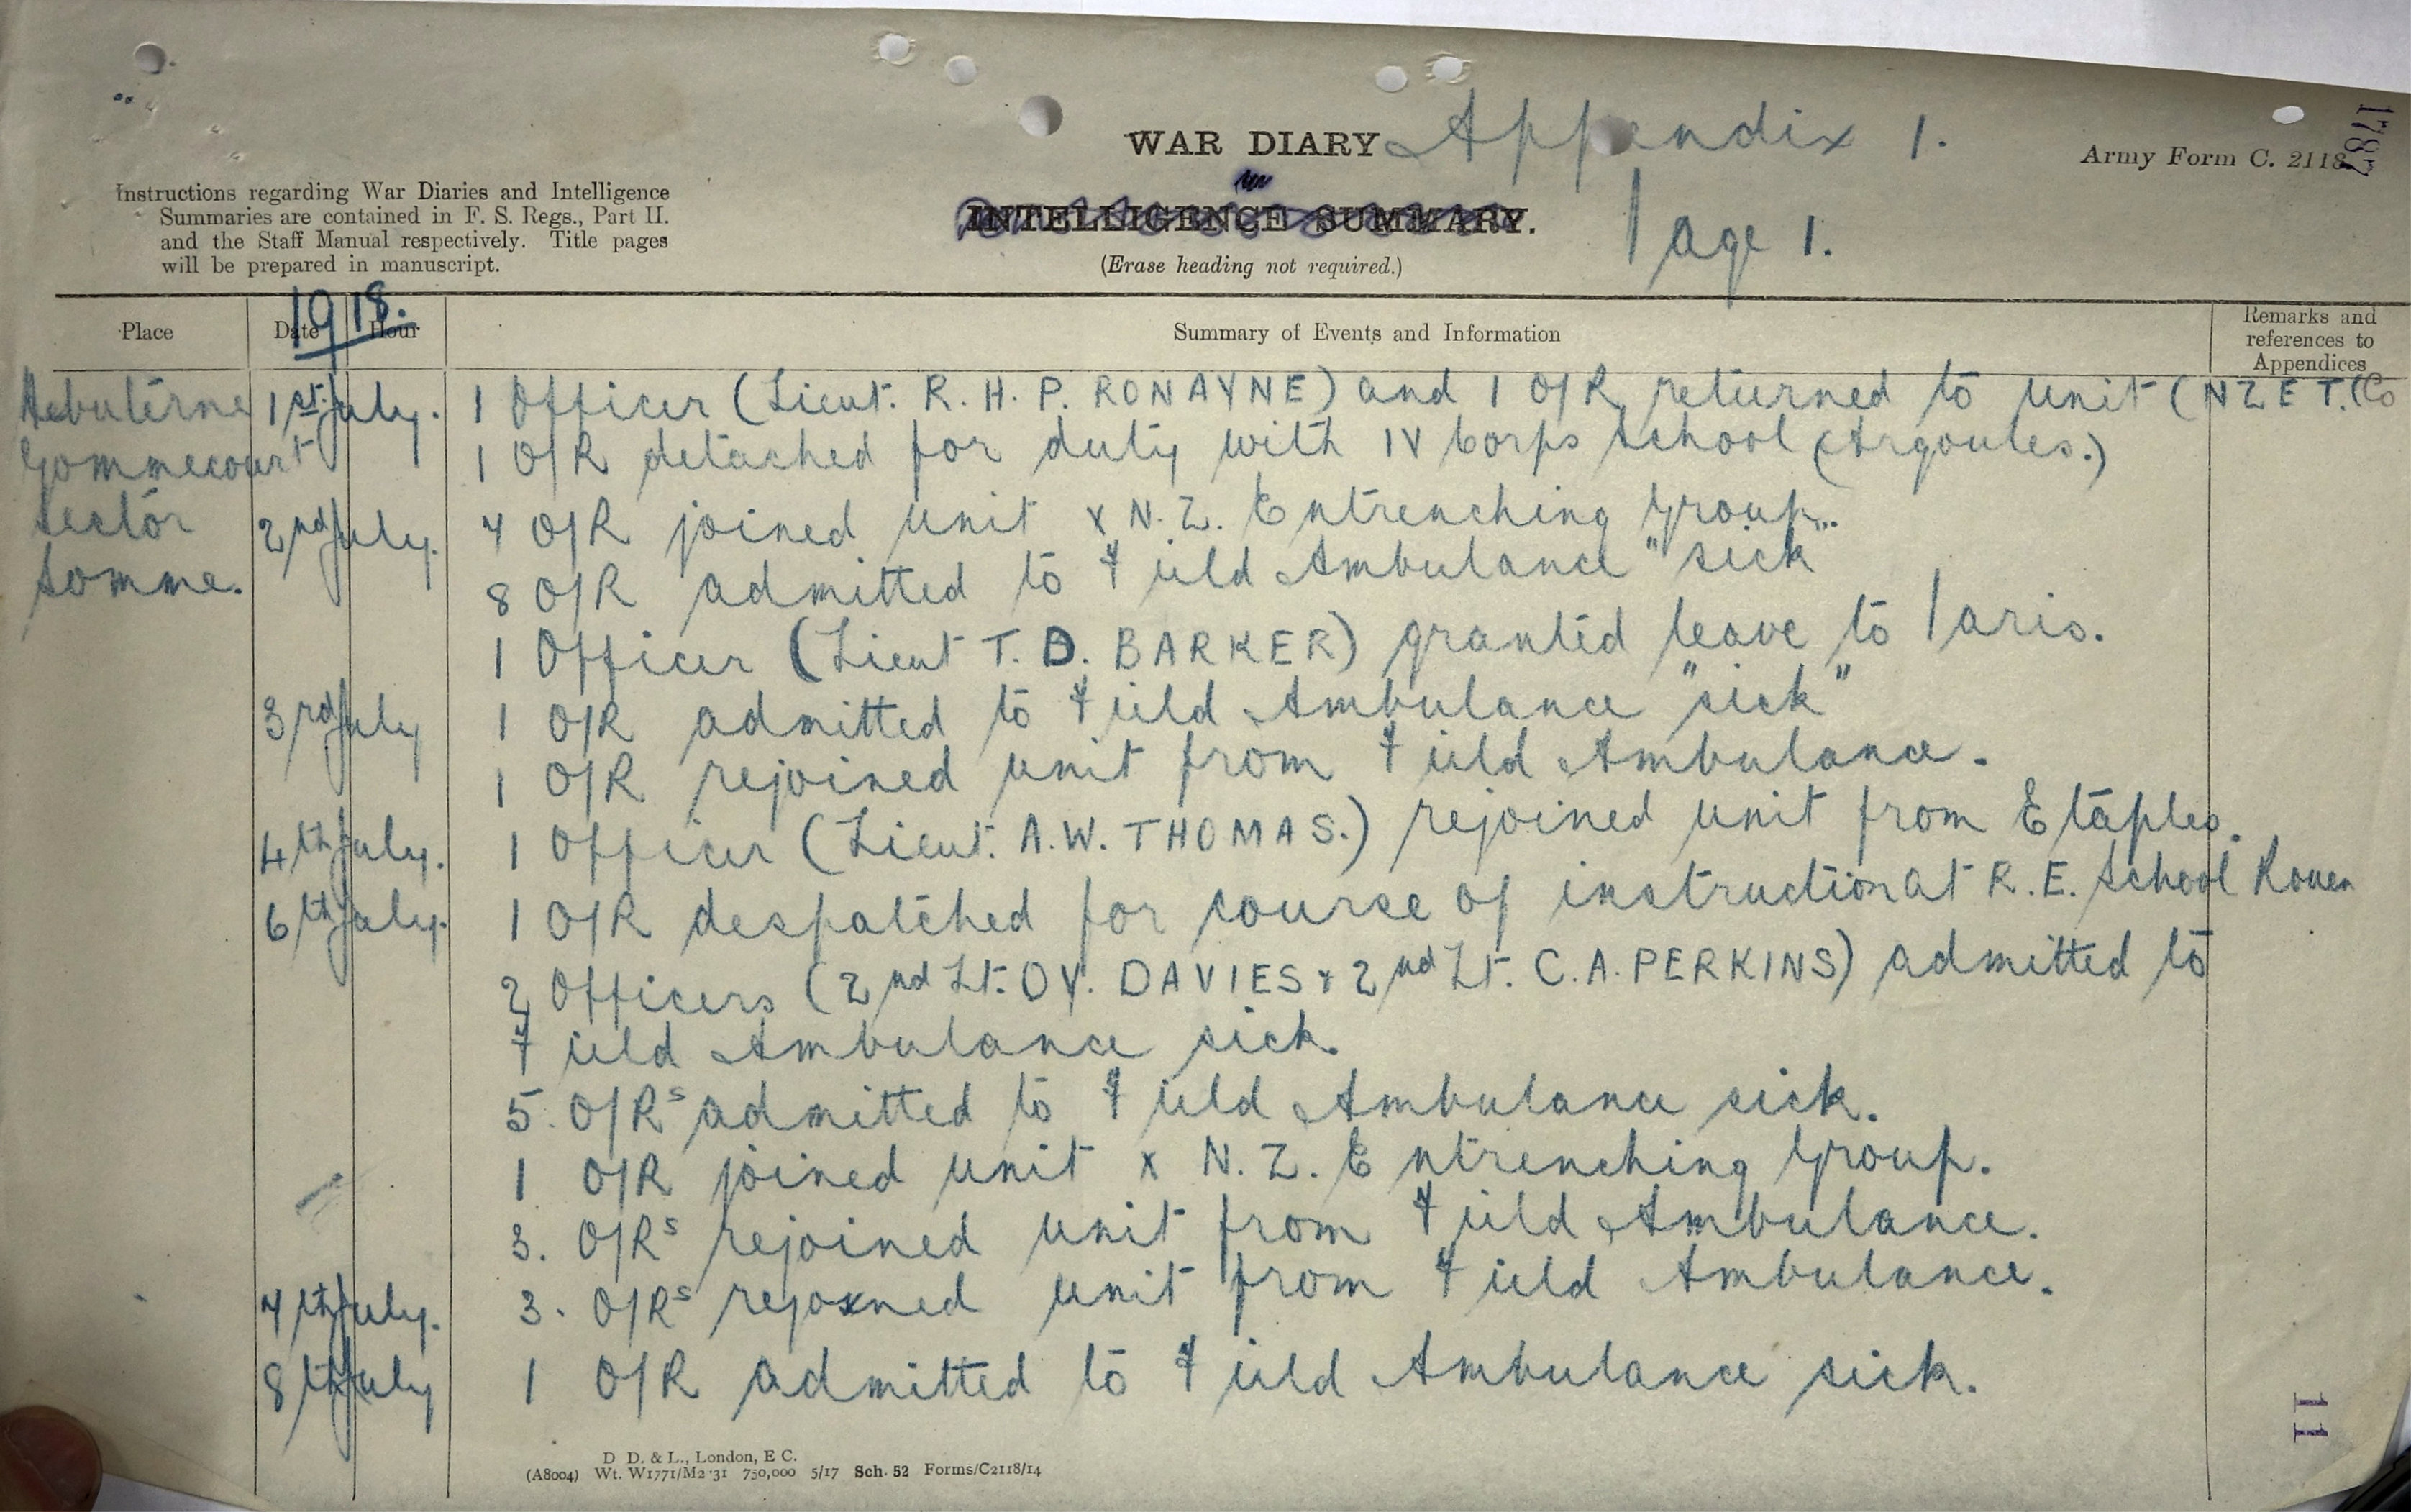 WAR DIARY Appendix 1.
Army Form C. 2118
1787
Instructions regarding War Diaries and Intelligence
Summaries are contained in F. S. Regs., Part II.
and the Staff Manual respectively. Title pages
will be prepared in manuscript.
INTELLIGENCE SUMMARY.
Page 1.
(Erase heading not required.)
1918.
Place Date Hour Summary of Events and Information Remarks and
references to
Appendices
Hebuterne 1st July. 1 Officer (Lieut. R. H. P. RONAYNE) and 1 O/R returned to unit (NZETCo
Gommecourt 1 O/R detached for duty with IV Corps School (Argoules.)
Sector 2nd July. 4 O/R joined unit x N. Z. Entrenching Group.
Somme. 8 O/R admitted to Field Ambulance "sick"
1 Officer (Lieut T. D. BARKER) granted leave to Paris.
3rd July 1 O/R admitted to Field Ambulance "sick"
1 O/R rejoined unit from Field Ambulance.
4th July. 1 Officer (Lieut. A.W. THOMAS.) rejoined unit from Etaples.
6th July. 1 O/R despatched for course of instruction at R.E. School Rouen
2 Officers (2nd Lt. O V. DAVIES & 2nd Lt. C.A. PERKINS) admitted to
Field Ambulance sick.
5. O/Rs admitted to Field Ambulance sick.
1 O/R joined unit x N. Z. Entrenching Group.
3. O/Rs rejoined unit from Field Ambulance.
7th July. 3. O/Rs rejoined unit from Field Ambulance.
8th July 1 O/R admitted to Field Ambulance sick.
11
D D. & L., London, E C.
(A8004) Wt. W1771/M2·31 750,000 5/17 Sch. 52 Forms/C2118/14